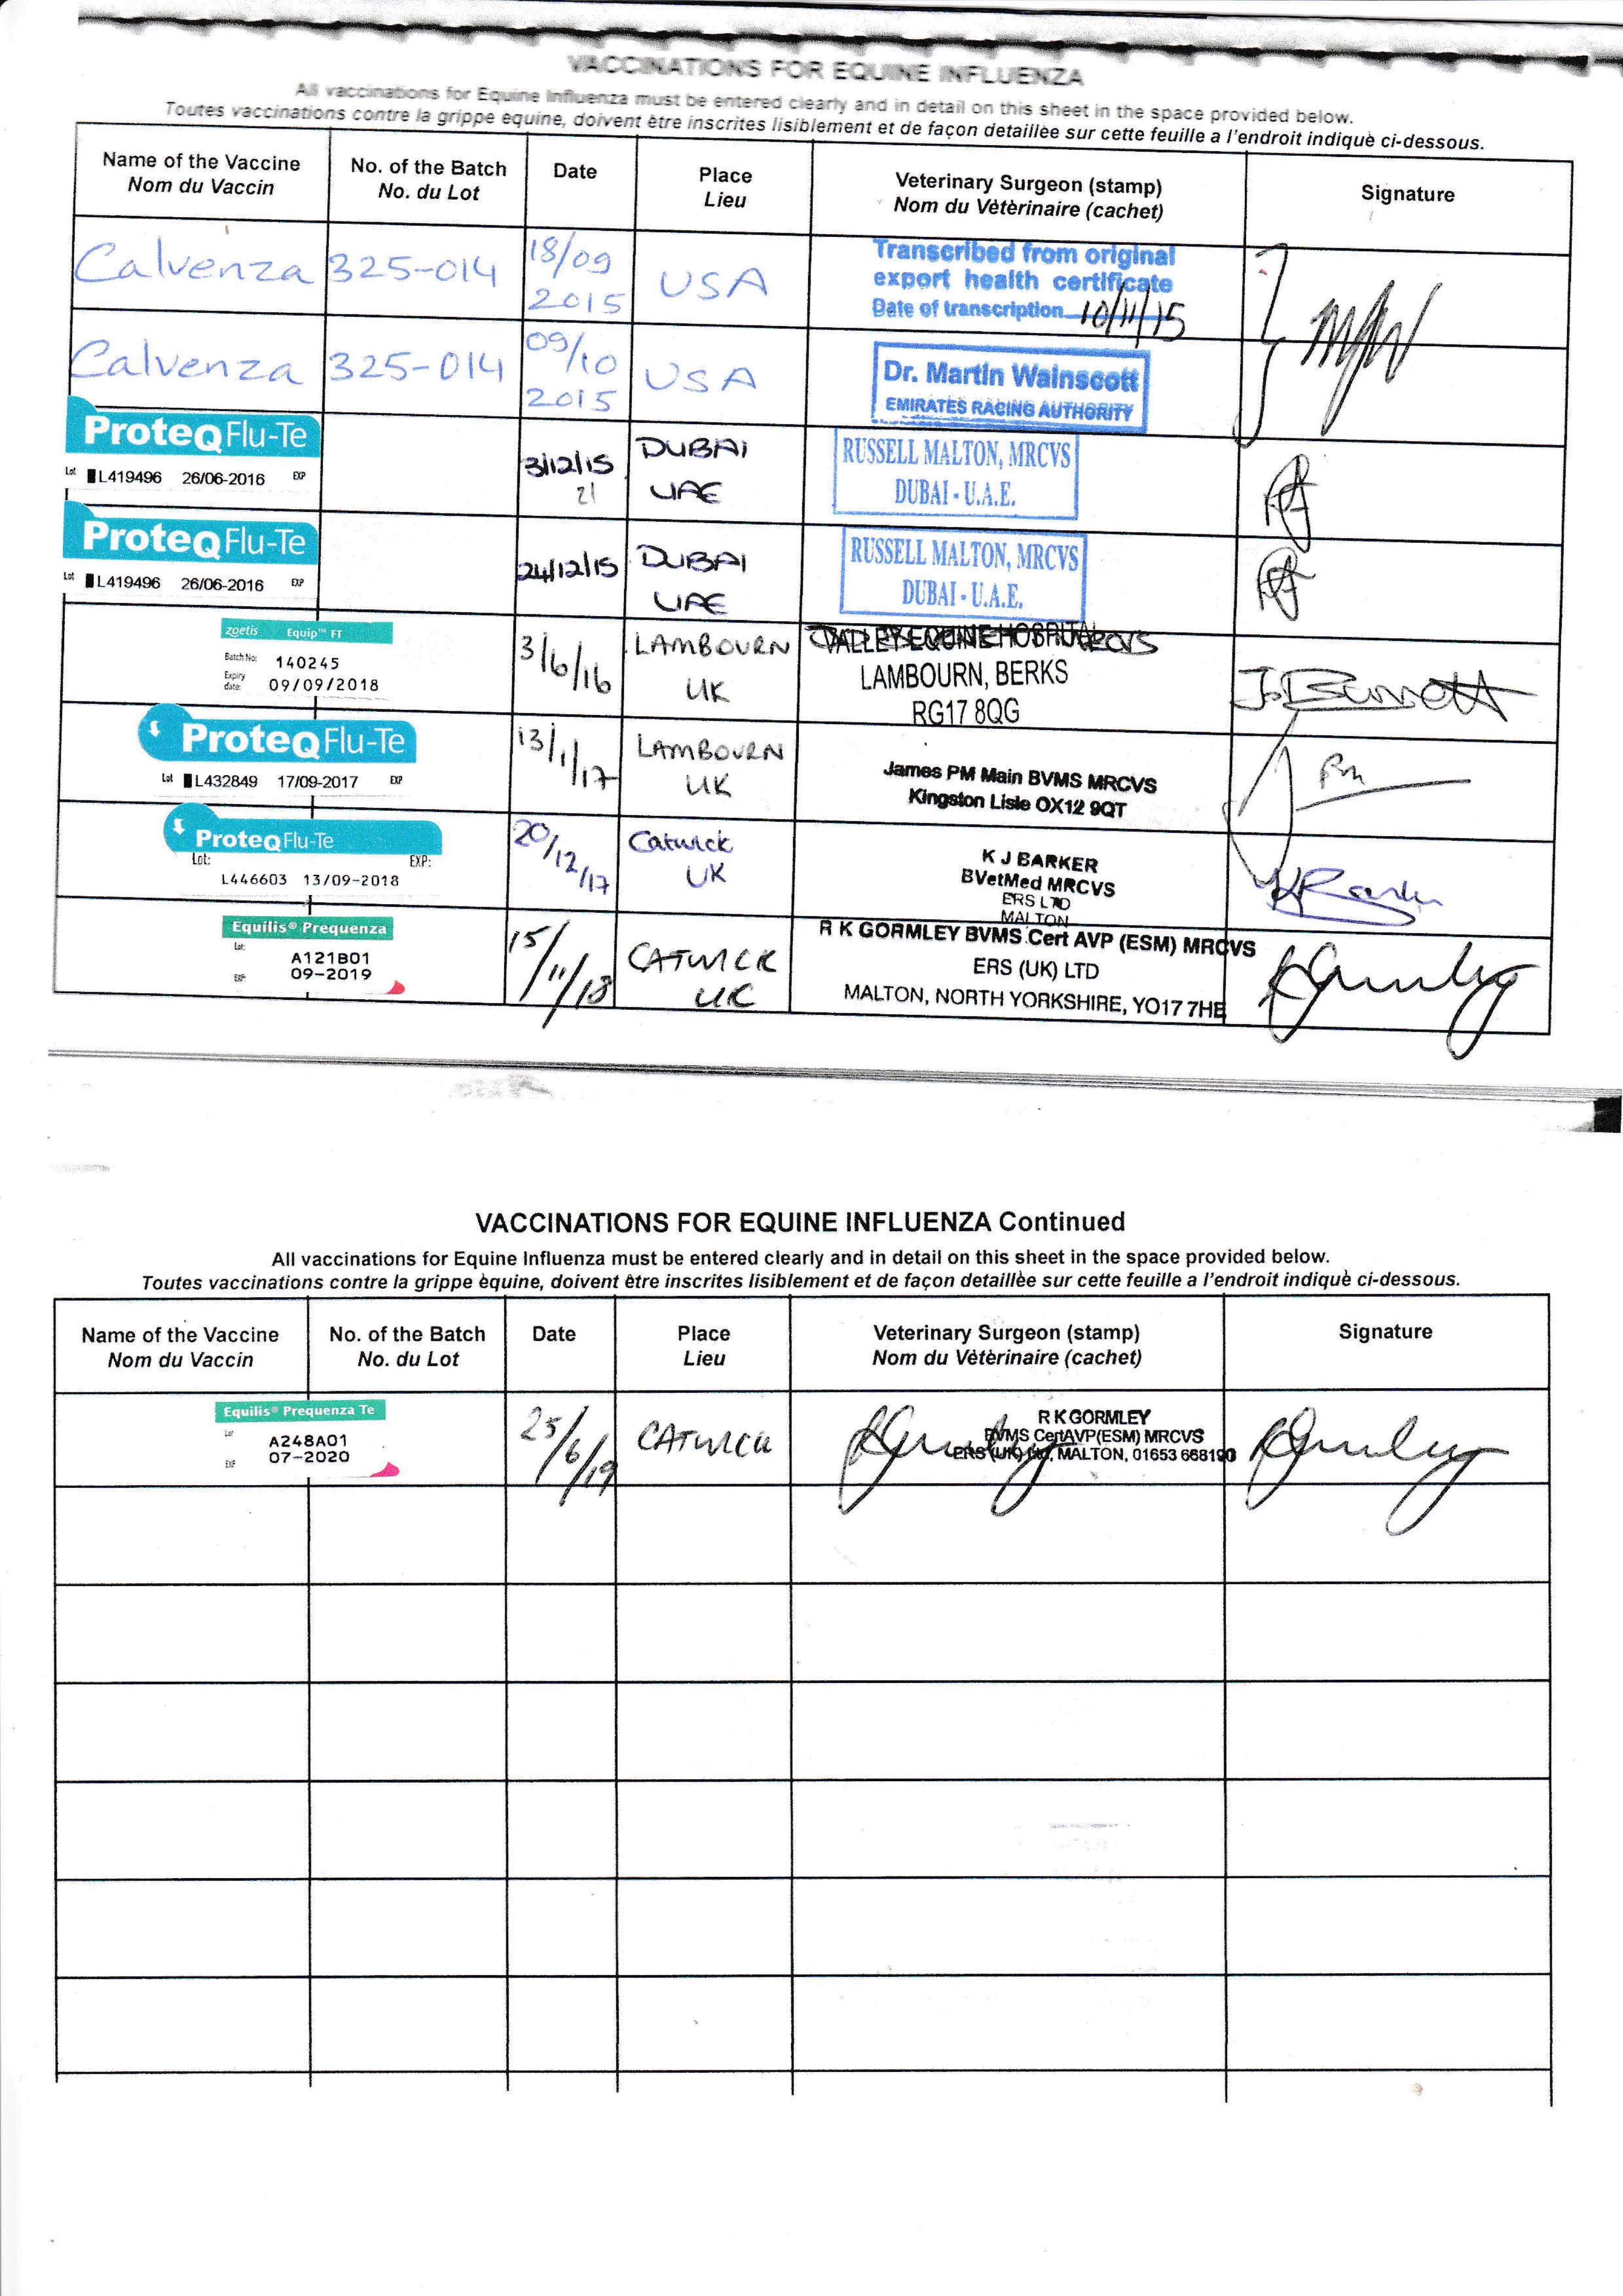 VACCINATIONS FOR EQUINE INFLUENZA
All vaccinations for Equine Influenza must be entered clearly and in detail on this sheet in the space provided below.
Toutes vaccinations contre la grippe èquine, doivent ètre inscrites lisiblement et de façon detaillèe sur cette feuille a l'endroit indiquè ci-dessous.
Name of the Vaccine No. of the Batch Date Place Veterinary Surgeon (stamp) Signature
Nom du Vaccin No. du Lot Lieu Nom du Vètèrinaire (cachet)
Calvenza 325-014 18/09 2015 USA
Transcribed from original
export health certificate
Date of transcription 10/11/15
Calvenza 325-014 09/10 2015 USA
Dr. Martin Wainscott
EMIRATES RACING AUTHORITY
ProteqFlu-Te
Lot L419496 26/06-2016 EXP
3/12/15
21
DUBAI
UAE
RUSSELL MALTON, MRCVS
DUBAI - U.A.E.
ProteqFlu-Te
Lot L419496 26/06-2016 EXP
24/12/15
DUBAI
UAE
RUSSELL MALTON, MRCVS
DUBAI - U.A.E.
zoetis Equip™ FT
Batch No: 140245
Expiry date: 09/09/2018
3/6/16
LAMBOURN
UK
VALLEY EQUINE HOSPITAL
LAMBOURN, BERKS
RG17 8QG
ProteqFlu-Te
Lot L432849 17/09-2017 EXP
13/1/17
LAMBOURN
UK
James PM Main BVMS MRCVS
Kingston Lisle OX12 9QT
ProteqFlu-Te
Lot: EXP:
L446603 13/09-2018
20/12/17
Catwick
UK
K J BARKER
BVetMed MRCVS
ERS LTD
MALTON
Equilis® Prequenza
Lot: A121B01
EXP: 09-2019
15/11/18
CATWICK
UK
R K GORMLEY BVMS Cert AVP (ESM) MRCVS
ERS (UK) LTD
MALTON, NORTH YORKSHIRE, YO17 7HE
VACCINATIONS FOR EQUINE INFLUENZA Continued
All vaccinations for Equine Influenza must be entered clearly and in detail on this sheet in the space provided below.
Toutes vaccinations contre la grippe èquine, doivent ètre inscrites lisiblement et de façon detaillèe sur cette feuille a l'endroit indiquè ci-dessous.
Name of the Vaccine No. of the Batch Date Place Veterinary Surgeon (stamp) Signature
Nom du Vaccin No. du Lot Lieu Nom du Vètèrinaire (cachet)
Equilis® Prequenza Te
Lot A248A01
EXP 07-2020
25/6/19
CATWICK
R K GORMLEY
BVMS CertAVP(ESM) MRCVS
ERS (UK) Ltd, MALTON, 01653 668190